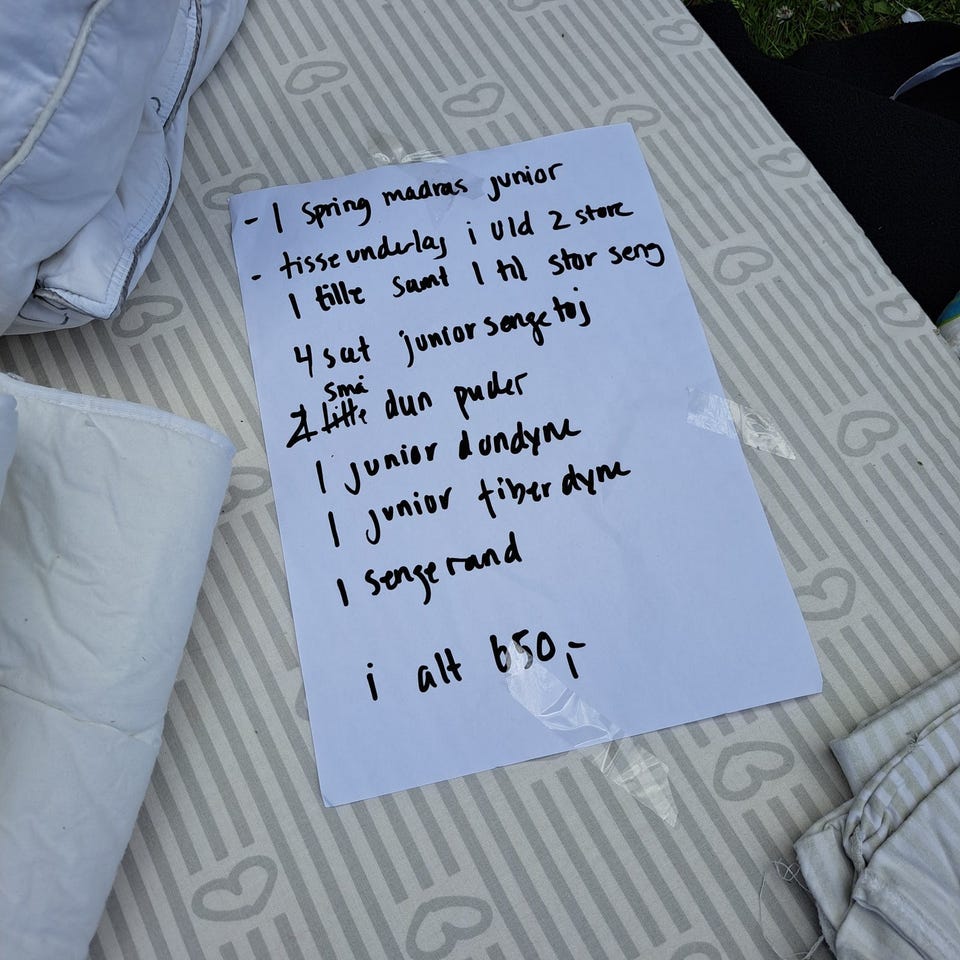 - 1 spring madras junior
- tisse underlag i uld 2 store
1 lille samt 1 til stor seng
4 sæt junior sengetøj
små
2 dun puder
1 junior dundyne
1 junior fiberdyne
1 sengerand
i alt 650,-